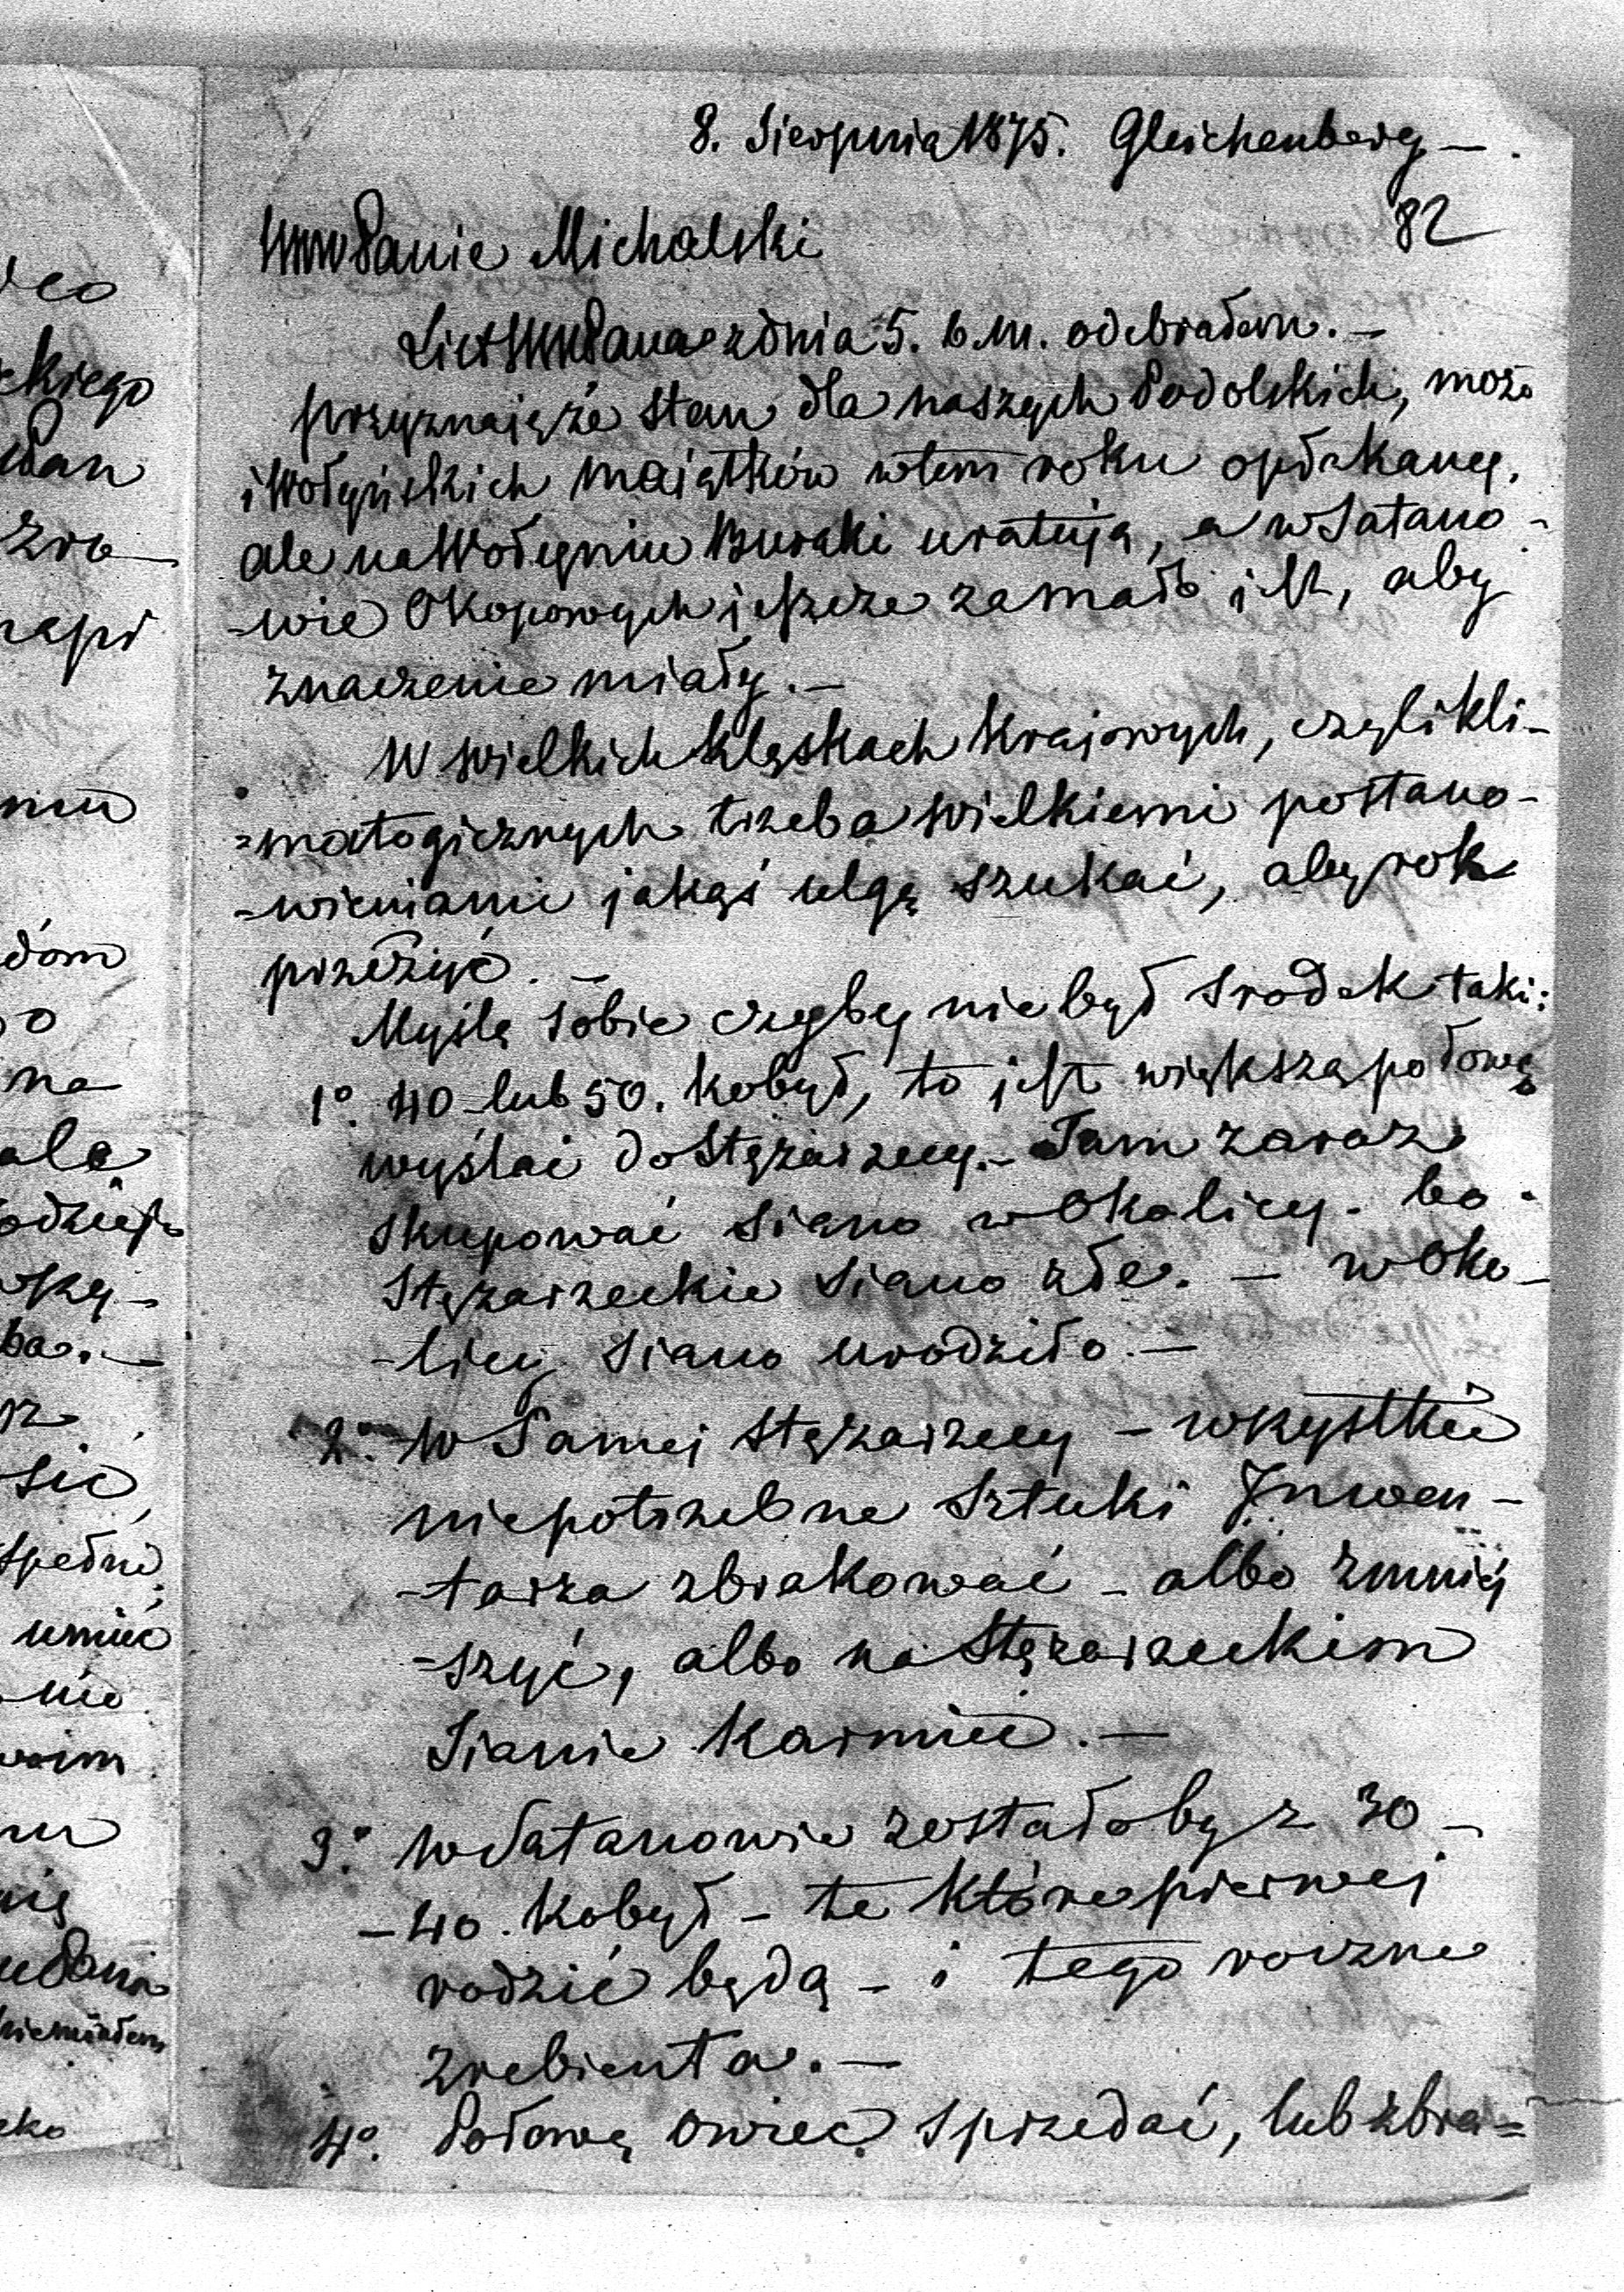 8. Sierpnia 1875. Gleichenberg —
82
WW Panie Michalski
List WW Pana z dnia 5. b. m. odebrałem. —
przyznaię że stan dla naszych Podolskich, może
i Wołyńskich maiątków w tem roku opłakany,
ale na Wołyniu Buraki uratują, a w Satano-
-wie Okopowych jeszcze zamało jest, aby
znaczenie miały. —
W wielkich klęskach Krajowych, czyli kli-
=matogicznych trzeba wielkiemi postano-
-wieniami jakąś ulgę szukać, aby rok
przeżyć. —
Myślę sobie czyby nie był srodek taki:
1° 40 lub 50. kobył, to jest większą połowę
wysłać do Stężarzecy. — Tam zaraz
skupować siano w Okolicy. bo
Stężarzeckie siano złe. — w Oko-
-licy siano urodziło. —
2° W Samej Stężarzecy — wszystkie
niepotrzebne Sztuki Inwen-
-tarza zbrakować — albo zmniej
-szyć, albo na Stężarzeckim
Sianie karmić. —
3° W Satanowie zostałoby z 30 —
— 40. kobył — te które pierwej
rodzić będą — i tego roczne
zrebienta. —
4° Połowę owiec sprzedać, lub zbra=
ckiego
Pan
zro—
napi
dom
o
na
ale
ba. —
sić
umieć
nie
Pana